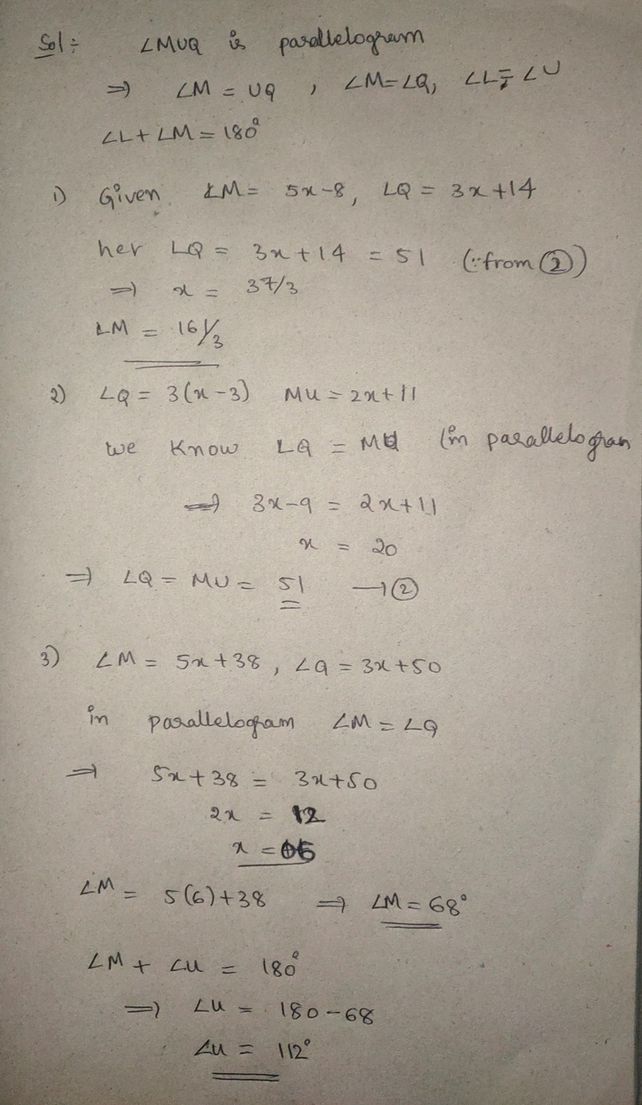 Sol:- ∠MUQ is parallelogram
⇒ ∠M = UQ , ∠M=∠Q, ∠L=∠U
∠L+∠M = 180°
1) Given ∠M = 5x-8, LQ = 3x+14
her LQ = 3x+14 = 51 (∵from ②)
⇒ x = 37/3
LM = 16/3
2) LQ = 3(x-3) MU = 2x+11
we know LQ = MU (in parallelogram
⇒ 3x-9 = 2x+11
x = 20
⇒ LQ = MU = 51 → ②
3) ∠M = 5x+38, ∠Q = 3x+50
in parallelogram ∠M = ∠Q
⇒ 5x+38 = 3x+50
2x = 12
x = 06
∠M = 5(6)+38 ⇒ ∠M = 68°
∠M + ∠U = 180°
⇒ ∠U = 180-68
∠U = 112°